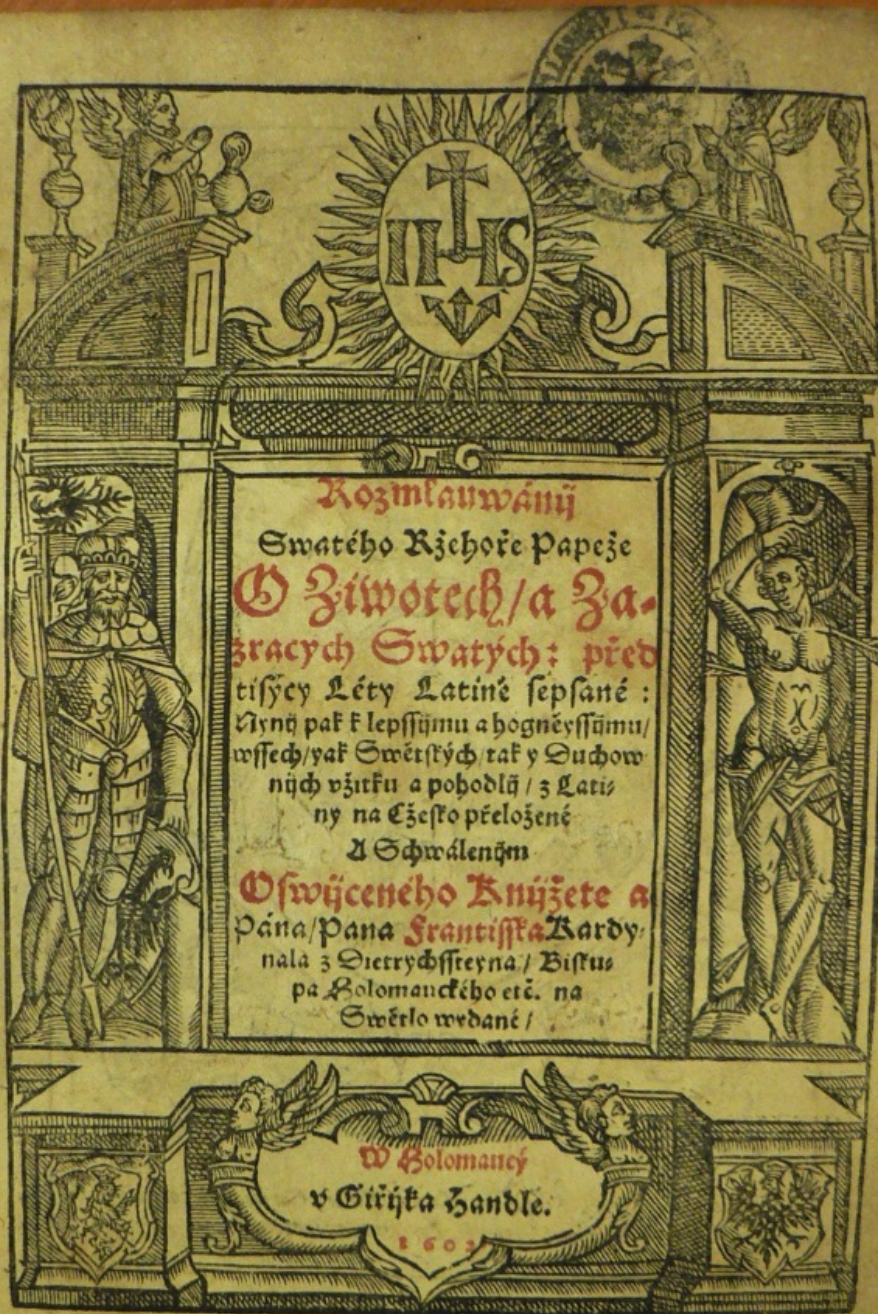 IHS
Rozmlauwánij
Swatého Ržehoře Papeže
O Ziwotech/a Za-
zracych Swatých: před
tisýcy Léty Latině sepsané:
Nynij pak k lepssijmu a hogněyssijmu/
wssech/yak Swětských/tak y Duchow
nijch vžitku a pohodlij/z Lati-
ny na Cžesko přeložené
A Schwálenijm
Oswijceného Knijžete a
Pána/Pana Frantisska Kardy-
nala z Dietrychssteyna/Bisku-
pa Holomauckého etč. na
Swětlo wydané/
W Holomaucý
v Giřijka Handle.